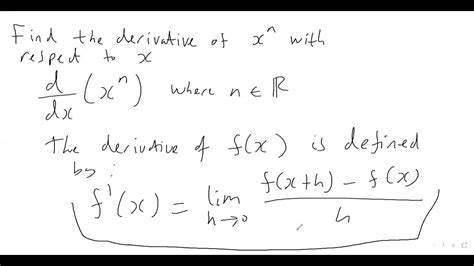 Find the derivative of xⁿ with
respect to x
d/dx (xⁿ) where n ∈ ℝ
The derivative of f(x) is defined
by :
f'(x) = lim h→0 (f(x+h) - f(x))/h